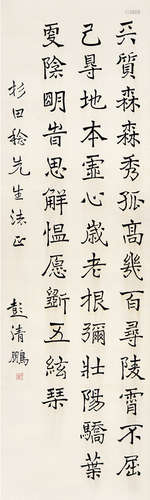 兲質森森秀孤高幾百尋陵霄不屈
己㝵地本虛心歲老根彌壯陽驕葉
更陰明旹思解慍愿斵五絃琴
杉田稔先生法正
彭清鵬